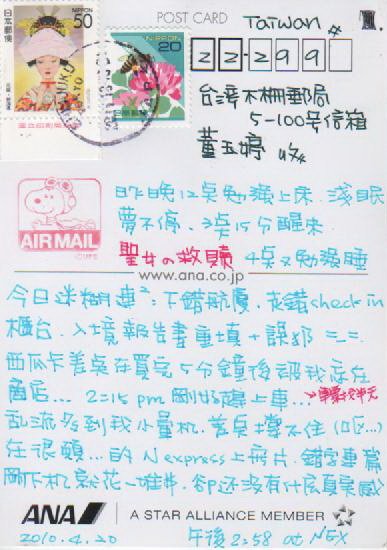 POST CARD
Taiwan
50 NIPPON
日本郵便
NIPPON 20
22-299
台灣木柵郵局
5-100号信箱
董玉婷 收
昨晚12点勉強上床. 淺眠
夢不停. 3点15分醒来
AIR MAIL
聖女の救贖 4点又勉強睡
www.ana.co.jp
今日迷糊連²: 不錯航廈. 衣錯check in
櫃台. 入境報告書重填+誤 三三
西瓜卡差点在買完5分鐘後被我忘在
商店... 2:15 pm 剛好趕上車...
乱流多到我小暈机. 差点撑不住 (吐...)
在很顛... 的 N express 上写片. 錯字連篇
剛下机 花一堆井. 卻还沒有什広真實感
ANA
A STAR ALLIANCE MEMBER
2010.4.20 午後2:58 at NEX